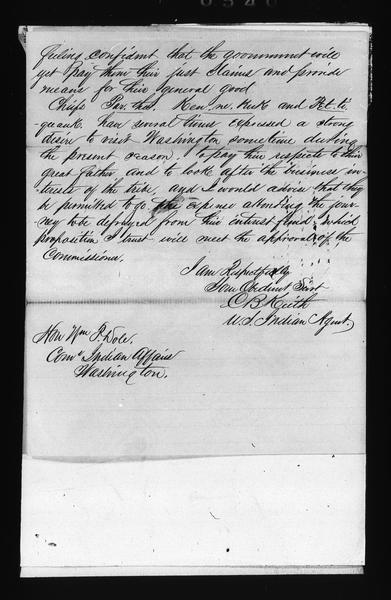 feeling confident that the government will
yet pay them their just claims and provide
means for their general good
Chiefs Par-thee, Ken-ne-kuk and Pet-ti-
quauk. have several times expressed a strong
desire to visit Washington sometime during
the present season, to pay their respects to their
great father and to look after the business in-
terests of the tribe, and I would advise that they
be permitted to go the expense attending the jour-
ney to be defrayed from their interest fund. Which
proposition I trust will meet the approval of the
Commissioner.
I am Respectfully
Your Obedient Servt
C B Keith
U.S. Indian Agent.
Hon Wm P. Dole.
Comr Indian Affairs
Washington.